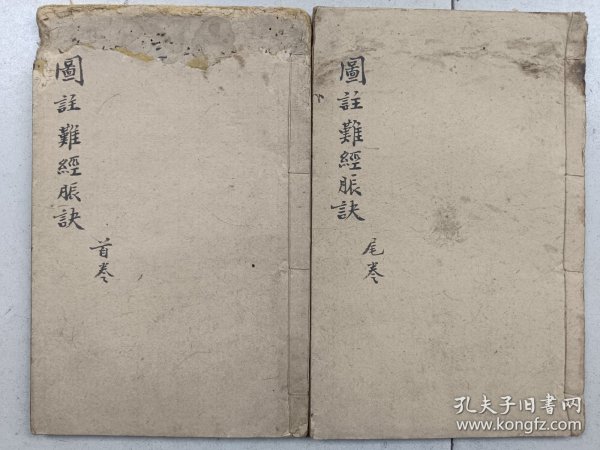 圖註難經脈訣
首卷
圖註難經脈訣
尾卷
孔夫子旧書网
www.kongfz.com